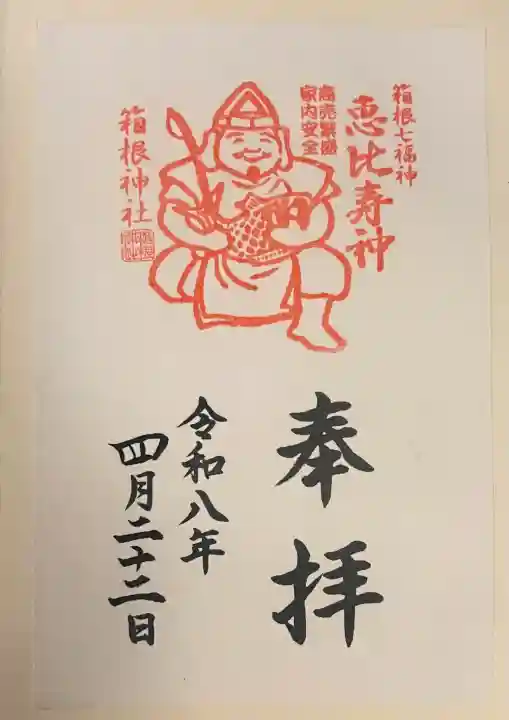 箱根七福神
恵比寿神
商売繁盛
家内安全
箱根神社
奉拝
令和八年
四月二十二日